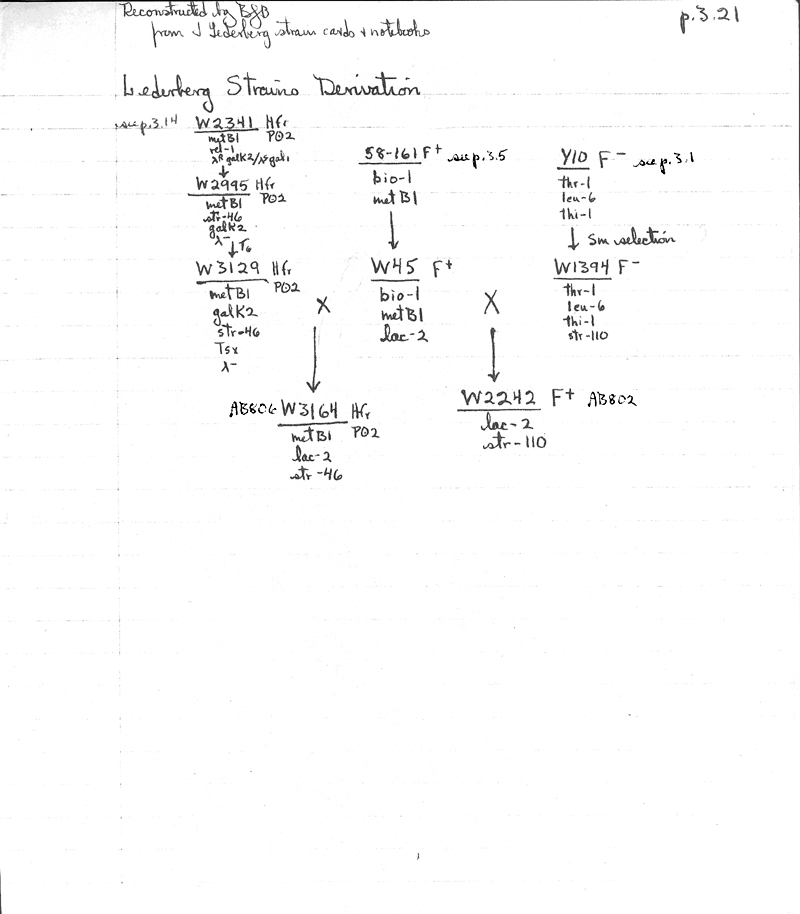 Reconstructed by BJB
from J Lederberg strain cards & notebooks
p.3.21
Lederberg Strains Derivation
see p.3.14 W2341 Hfr
metB1 PO2
rel-1
λR galK2/λS gal1
W2995 Hfr
metB1 PO2
str-46
galK2
λ-
T6
W3129 Hfr
metB1 PO2
galK2
str-46
Tsx
λ-
X
58-161 F+ see p.3.5
bio-1
metB1
W45 F+
bio-1
metB1
lac-2
X
Y10 F- see p.3.1
thr-1
leu-6
thi-1
Sm selection
W1394 F-
thr-1
leu-6
thi-1
str-110
W3164 Hfr
metB1 PO2
lac-2
str-46
W2242 F+ AB802
lac-2
str-110